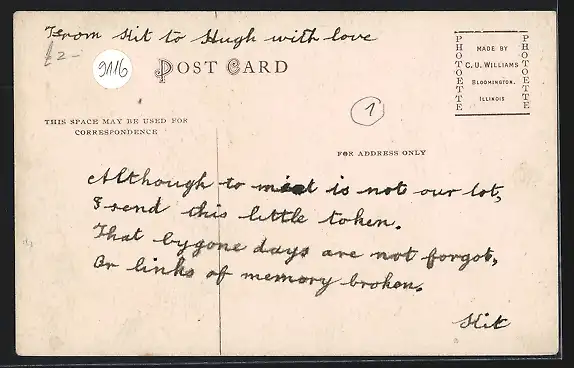 From Kit to Hugh with love
£2-
9116
POST CARD
1
PHOTOETTE
MADE BY
C. U. WILLIAMS
BLOOMINGTON.
ILLINOIS
PHOTOETTE
THIS SPACE MAY BE USED FOR
CORRESPONDENCE
FOR ADDRESS ONLY
Although to meet is not our lot,
I send this little token.
That bygone days are not forgot,
Or links of memory broken.
Kit